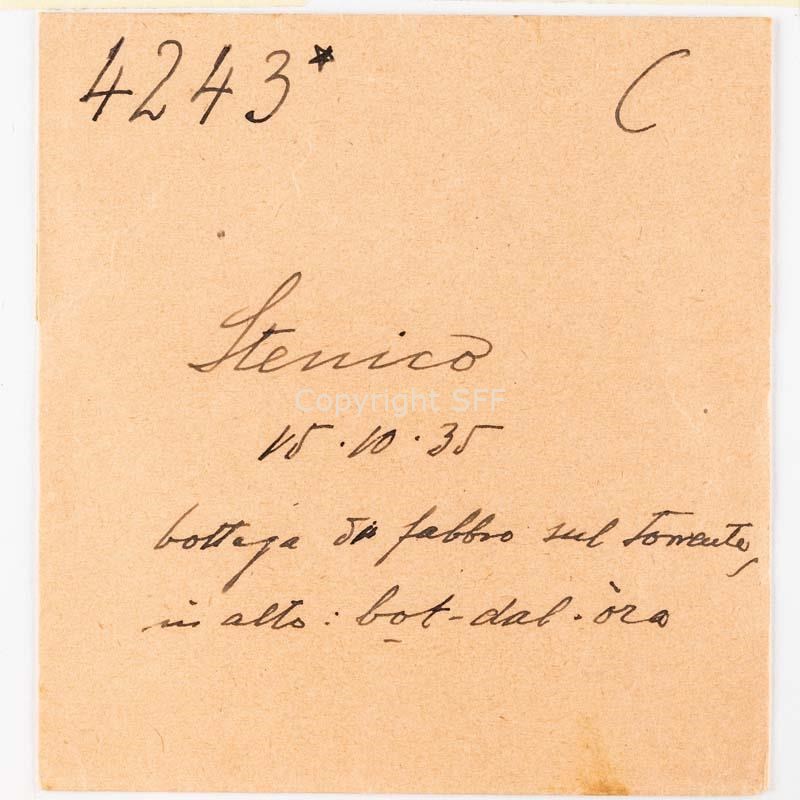 4243* C
Stenico
Copyright SFF
15.10.35
bottega di fabbro sul torrente,
in alto: bo̱t-dal-òra